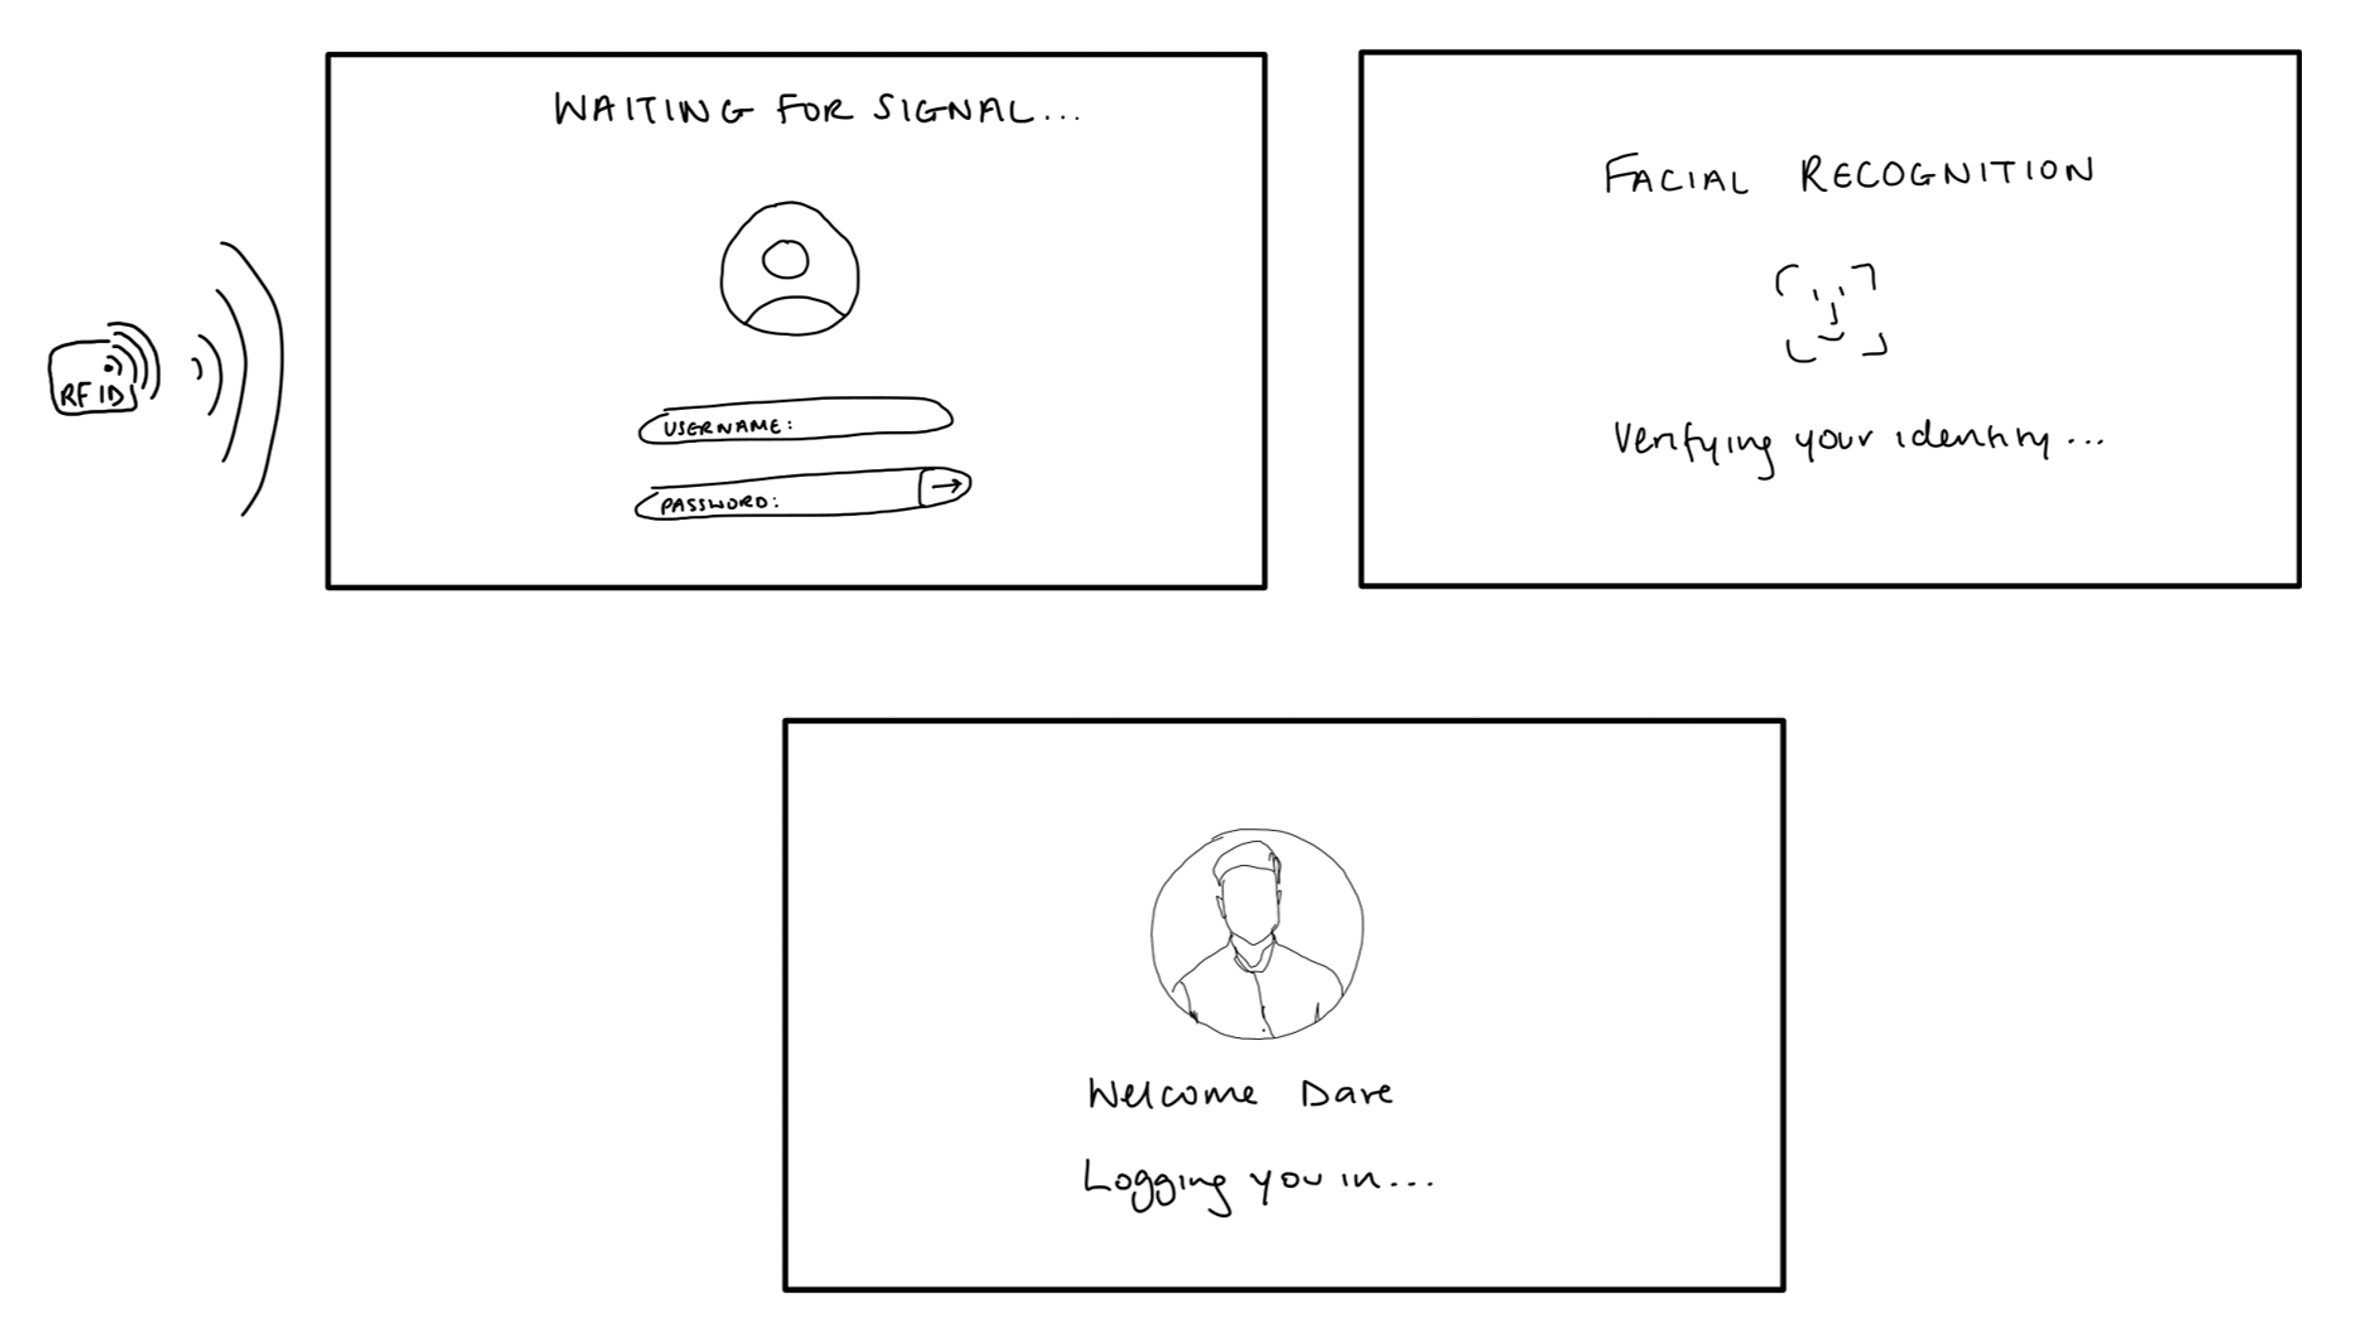 WAITING FOR SIGNAL...
RFID
USERNAME:
PASSWORD:
FACIAL RECOGNITION
Verifying your identity...
Welcome Dave
Logging you in...